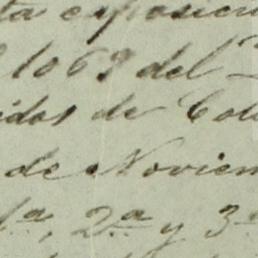 ta exposicion
1063 del
idos de Col
de Noviem
1ª, 2ª y 3ª